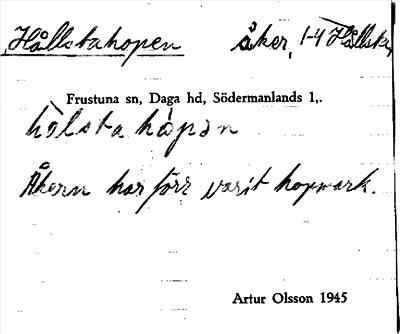 Hållstahopen åker, 1-4 Hållsta,
Frustuna sn, Daga hd, Södermanlands l,.
hålsta hopən
Åkern har förr varit hopmark.
Artur Olsson 1945